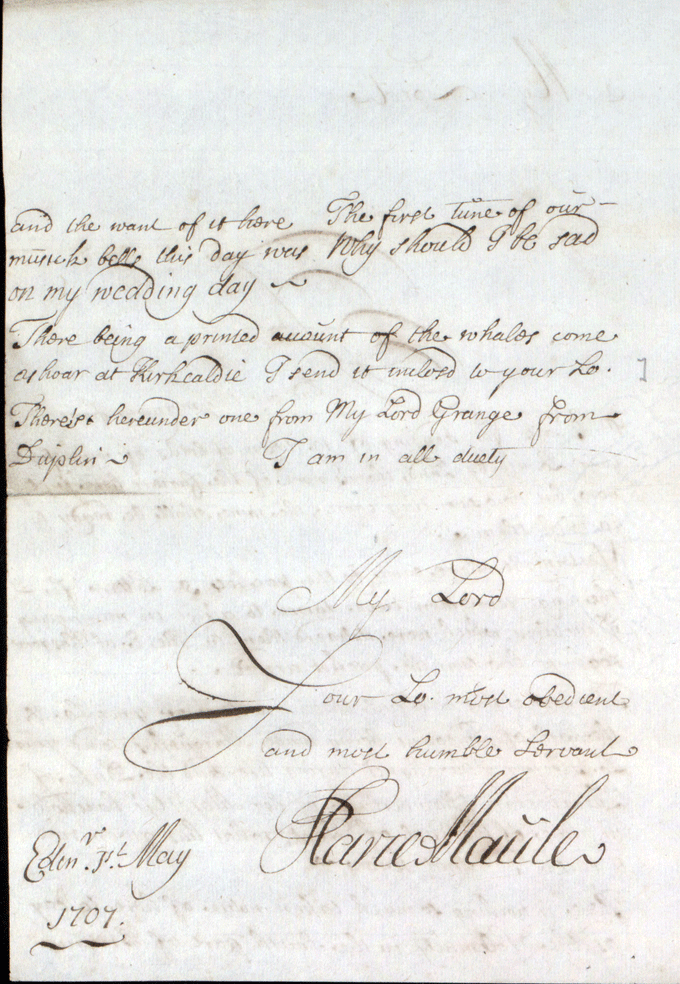 and the want of it here The first tune of our
musick bells this day was Why should I be sad
on my wedding day
There being a printed account of the whales come
ashoar at Kirkcaldie I send it inclosd to your Lo.
There's hereunder one from My Lord Grange from
Duplin I am in all duety
My Lord
Your Lo. most obedient
and most humble servant
Harie Maule
Edinr. 1st May
1707.